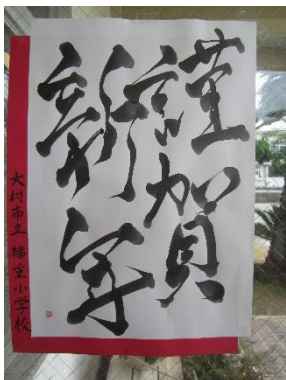 謹賀
新年
大村市立 福重小学校